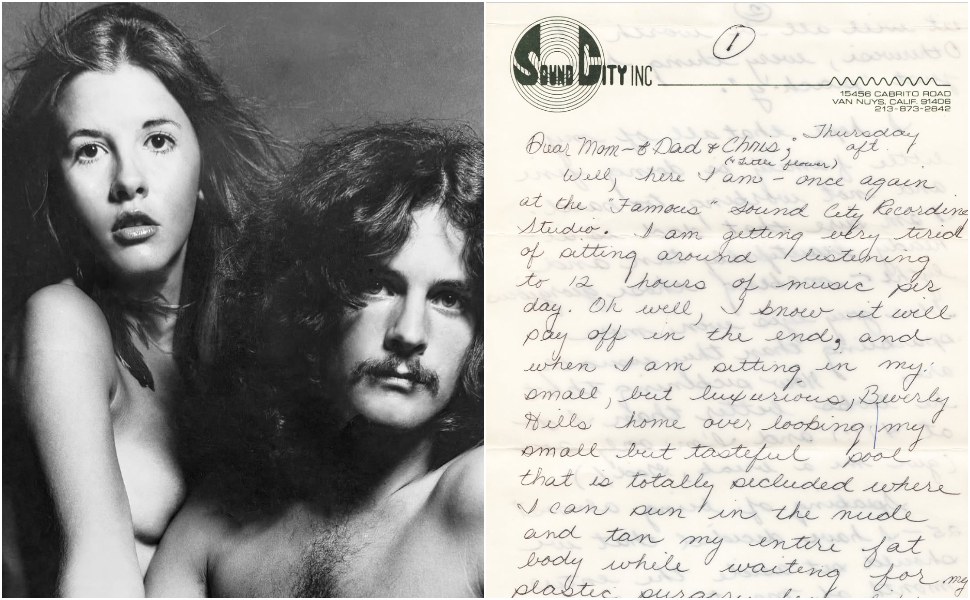 1
SOUND CITY INC
15456 CABRITO ROAD
VAN NUYS, CALIF. 91406
213-873-2842
Thursday
aft.
Dear Mom - & Dad & Chris;
(& little flower)
Well, here I am - once again
at the "Famous" Sound City Recording
Studio. I am getting very tired
of sitting around listening
to 12 hours of music per
day. Oh well, I know it will
pay off in the end, and
when I am sitting in my
small, but luxurious, Beverly
Hills home over looking my
small but tasteful pool
that is totally secluded where
I can sun in the nude
and tan my entire fat
body while waiting for my
plastic surgery